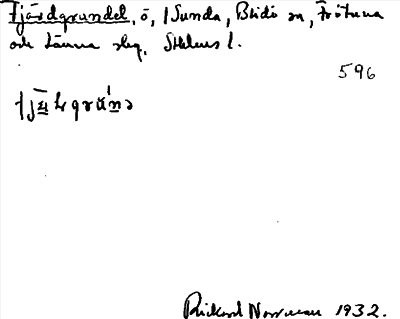 Fjärdgrundet, ö, /Sunda, Blidö sn, Frötuna
och Länna skg, Sthlms l.
596
Rickard Norrman 1932.